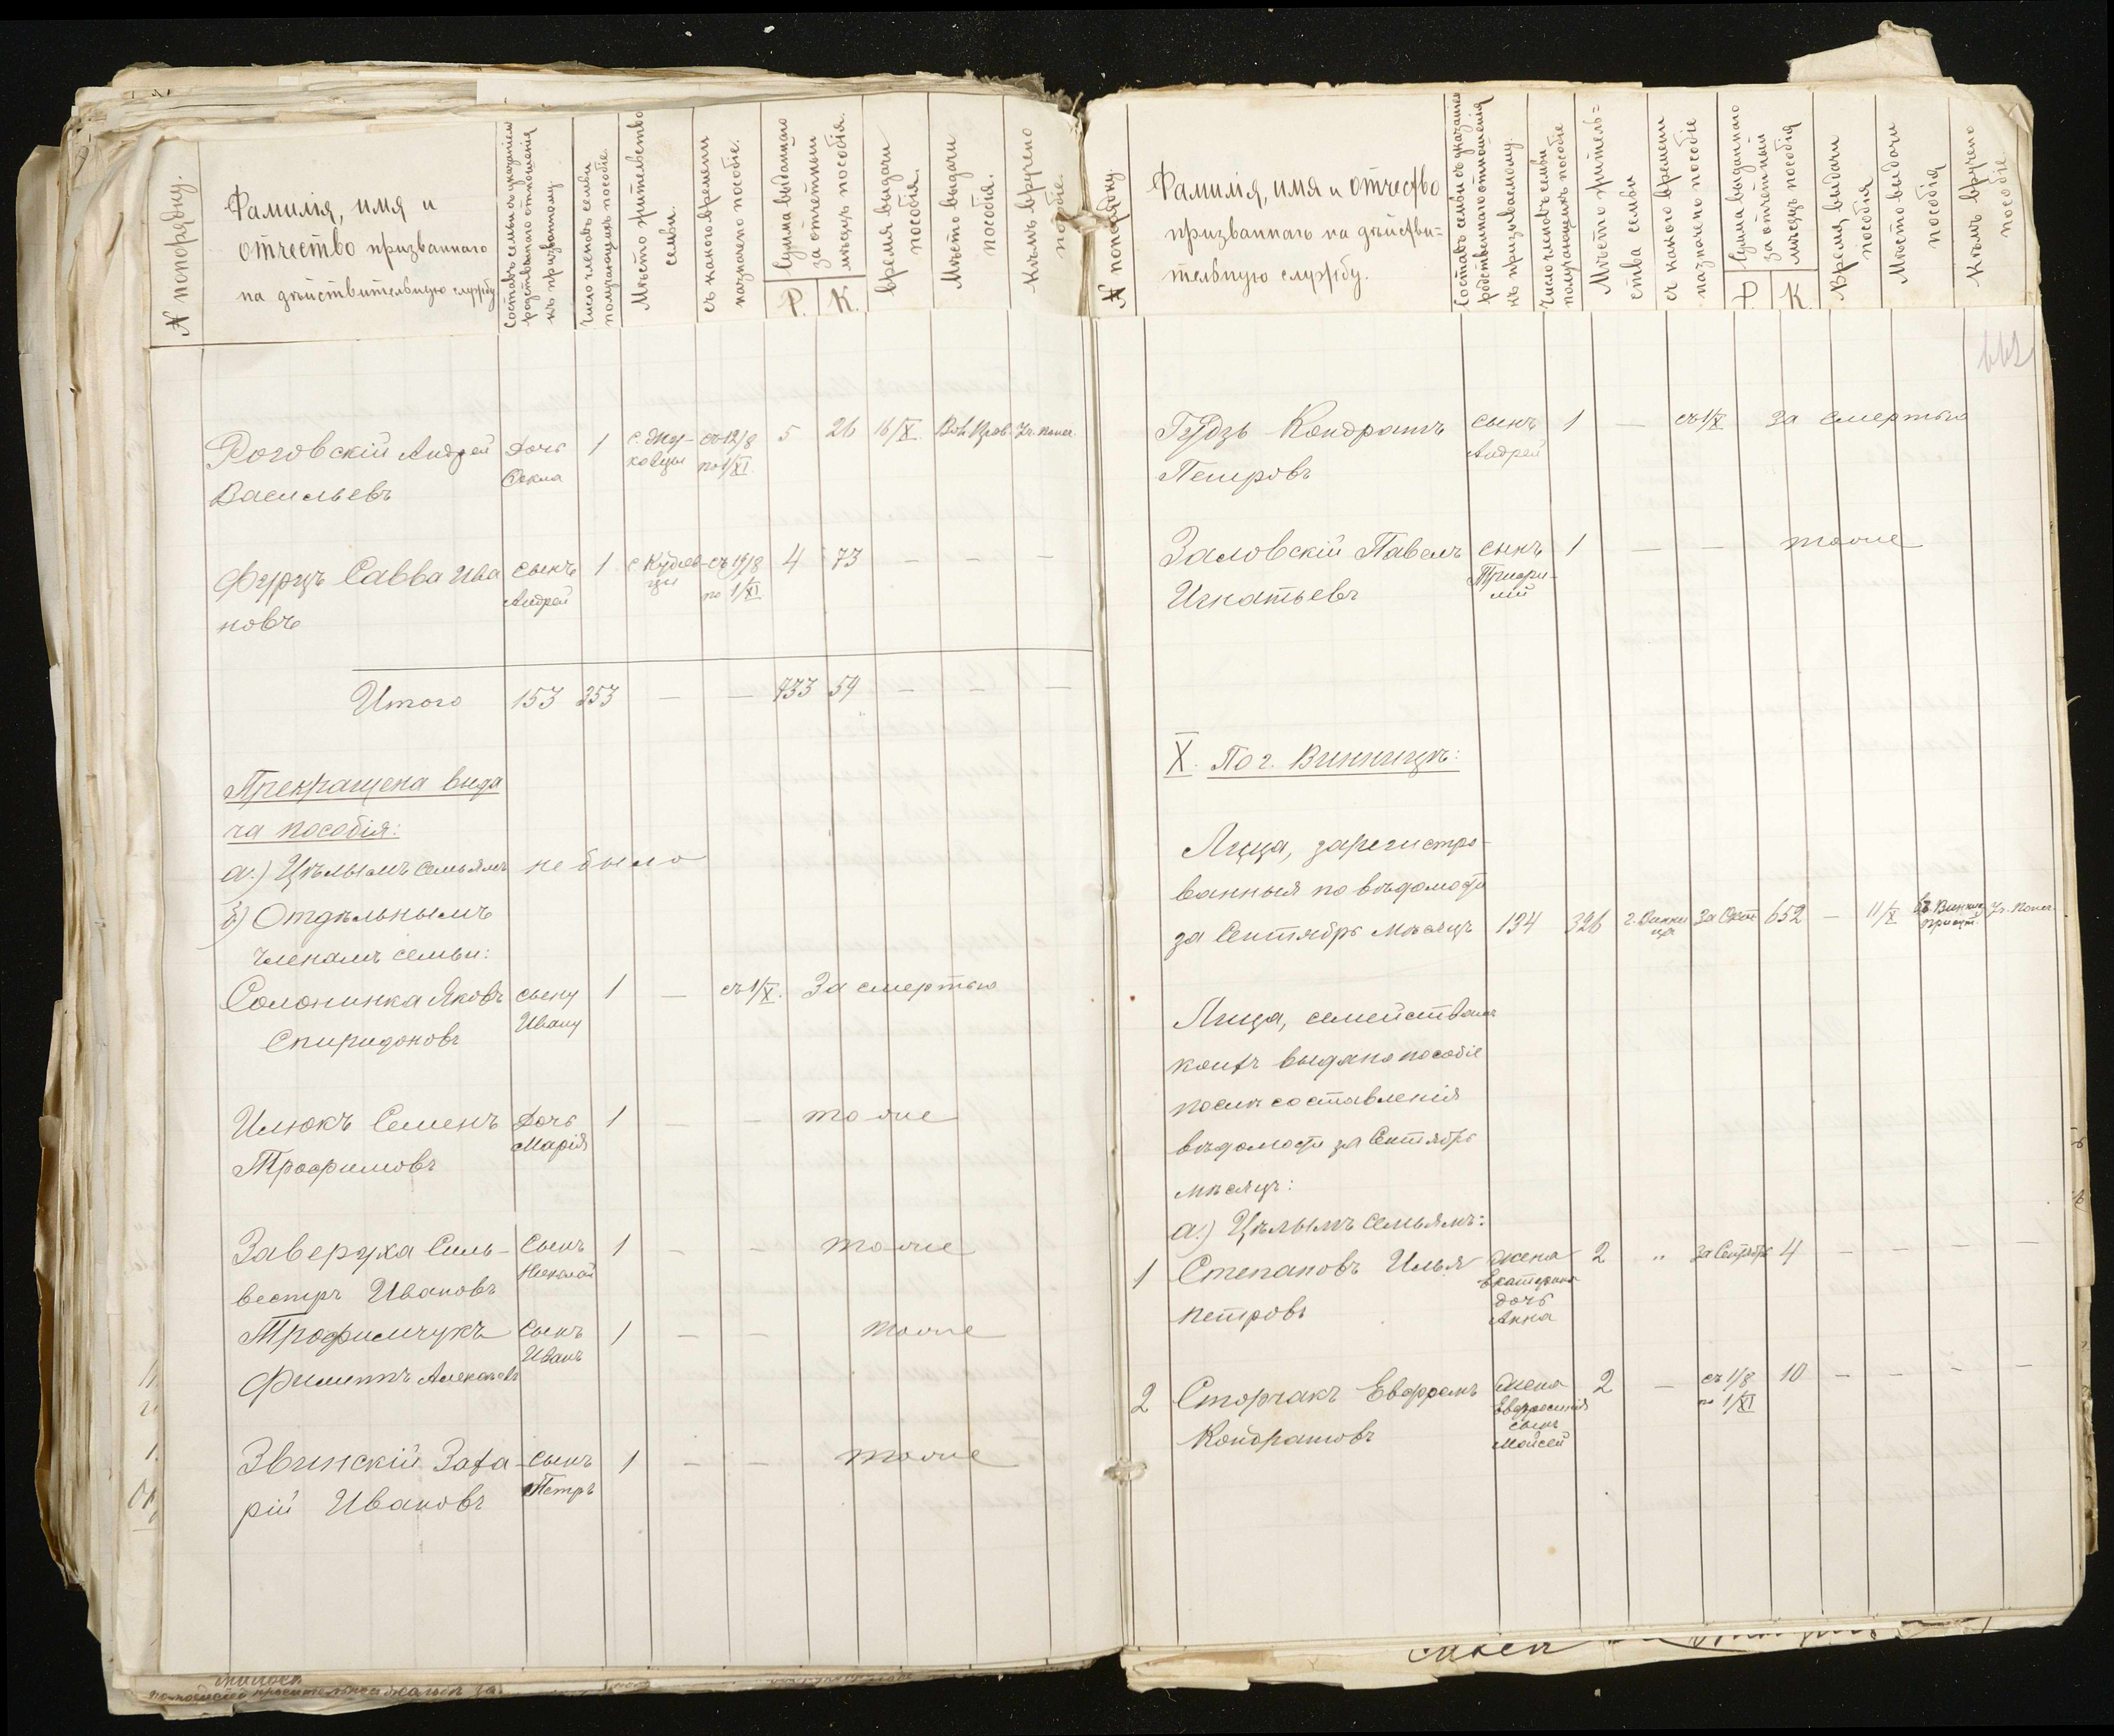 № попорядку.
Фамилія, имя и
отчество призваннаго
на дѣйствительную службу
Составъ семьи съ указаніем
родственнаго отношенія
къ призванному.
Число членовъ семьи
получающихъ пособіе.
Мѣсто жительство
семьи.
съ какого времени
назначено пособіе.
Сумма выданнаго
за отчетный
мѣсяцъ пособія.
Р. К.
Время выдачи
пособія.
Мѣсто выдачи
пособія.
Кѣмъ вручено
пособіе.
Роговскій Андрей Дочь 1 с. Жу- съ 12/8 5 26 16/X
Васильевъ Ѳекла ковцы по 1/XI.
Фурцъ Савва Ива сынъ 1 съ 19/8 4 73 — — —
новъ Андрей по 1/XI
Итого 153 353 — — 733 59 — — —
Прекращена выда
ча пособія:
а.) Цѣлымъ семьямъ не было
б) Отдѣльнымъ
членамъ семьи:
Солонинка Яковъ сыну 1 — съ 1/X. За смертью
Спиридоновъ Ивану
Илюкъ Семенъ Дочь 1 — — тоже
Трофимовъ Марія
Заверуха Силь- Сынъ 1 — — тоже
вестръ Ивановъ Николай
Трофимчукъ Сынъ 1 — — тоже
Филиппъ Иванъ
Звинскій Заха- сынъ 1 — — тоже
рій Ивановъ Петръ
№ попорядку
Фамилія, имя и отчество
призваннаго на дѣйстви=
тельную службу.
Составъ семьи съ указаніем
родственнаго отношенія
къ призываемому.
Число членовъ семьи
получающихъ пособіе
Мѣсто житель=
ства семьи
съ какого времени
назначено пособіе
Сумма выданнаго
за отчетный
мѣсяцъ пособія
Р. К.
Время выдачи
пособія
Мѣсто выдачи
пособія
Кѣмъ вручено
пособіе.
Гудзь Кондратъ сынъ 1 — съ 1/X за смертью
Петровъ Андрей
Заловскій Павелъ сынъ 1 — — тоже
Игнатьевъ
X. По г. Винницѣ:
Лица, зарегистро-
ванныя по вѣдомости
за Сентябрь мѣсяцъ 134 326 г. Винни ца за Окт 652 — 11/X
Лица, семействамъ
коихъ выдано пособіе
послѣ составленія
вѣдомости за Сентябрь
мѣсяцъ:
а.) Цѣлымъ семьямъ:
1 Степановъ Илья жена 2 " за Сентябрь 4 — — — —
Петровъ Екатерина
дочь
Анна
2 Сторчакъ Евфремъ жена 2 — съ 1/8 10 — — — —
Кондратовъ Евфросинія по 1/XI
сынъ
Мойсей